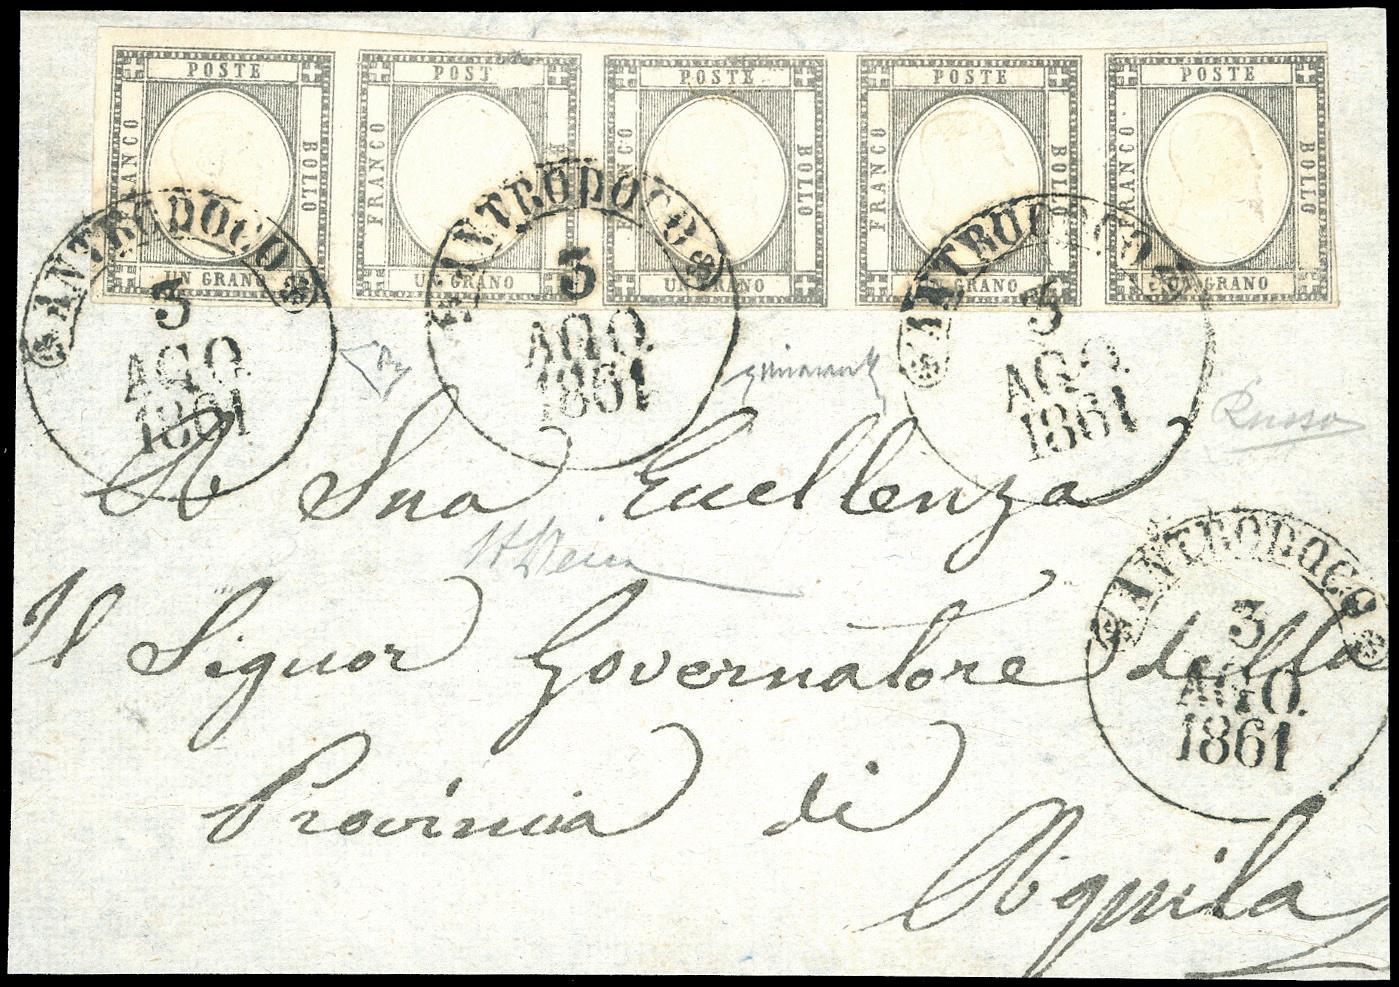 POSTE POST POSTE POSTE POSTE
FRANCO BOLLO FRANCO FRANCO BOLLO FRANCO BOLLO FRANCO BOLLO
UN GRANO UN GRANO UN GRANO UN GRANO UN GRANO
ANTRODOCO ANTRODOCO ANTRODOCO
3 3 3
AGO. AGO. AGO.
1861 1861 1861
Russo
A Sua Eccellenza
ANTRODOCO
3
AGO.
1861
Il Signor Governatore della
Provincia di
Aquila